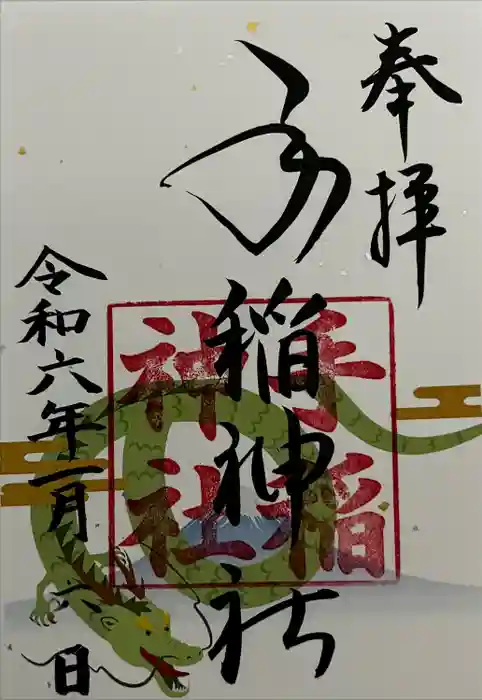 奉拝
手稲神社
手稲
神社
令和六年一月六日